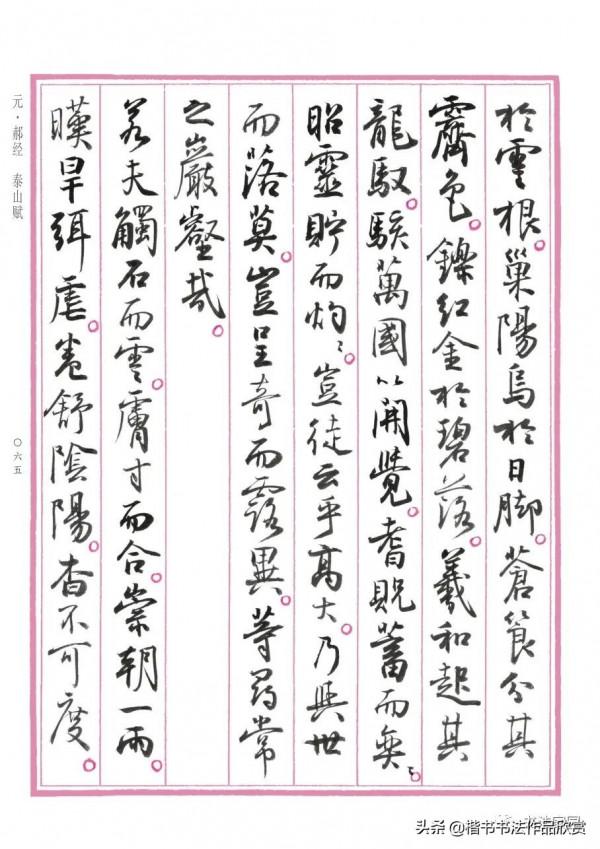 於雲根。巢陽烏於日腳。蒼筤分其
霽色。鑠紅金於碧落。羲和起其
龍馭。駭萬國以開覺。耆貺蓄而奐ミ
昭靈貯而灼ミ。豈徒云乎高大。乃與世
而落莫。豈呈奇而露異。等尋常
之巖壑哉。
若夫觸石而雲。膚寸而合。崇朝一雨
暵旱弭虐。卷舒陰陽。杳不可度。
元·郝经 泰山赋
〇六五
头条@楷书书法作品欣赏